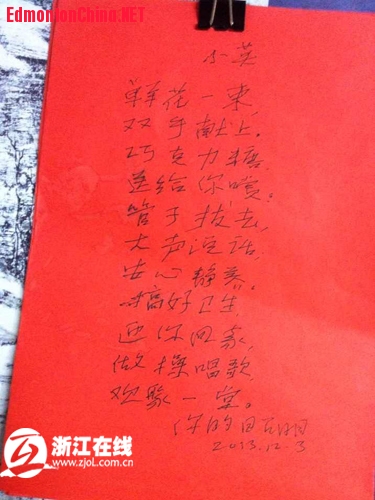 EdmontonChina.NET
小英
鲜花一束,
双手献上,
巧克力糖,
送给你嗅。
管子拔去,
大声说话,
安心静养。
搞好卫生
迎你回家,
做操唱歌,
欢聚一堂。
你的
2013.12.3
浙江在线
www.zjol.com.cn